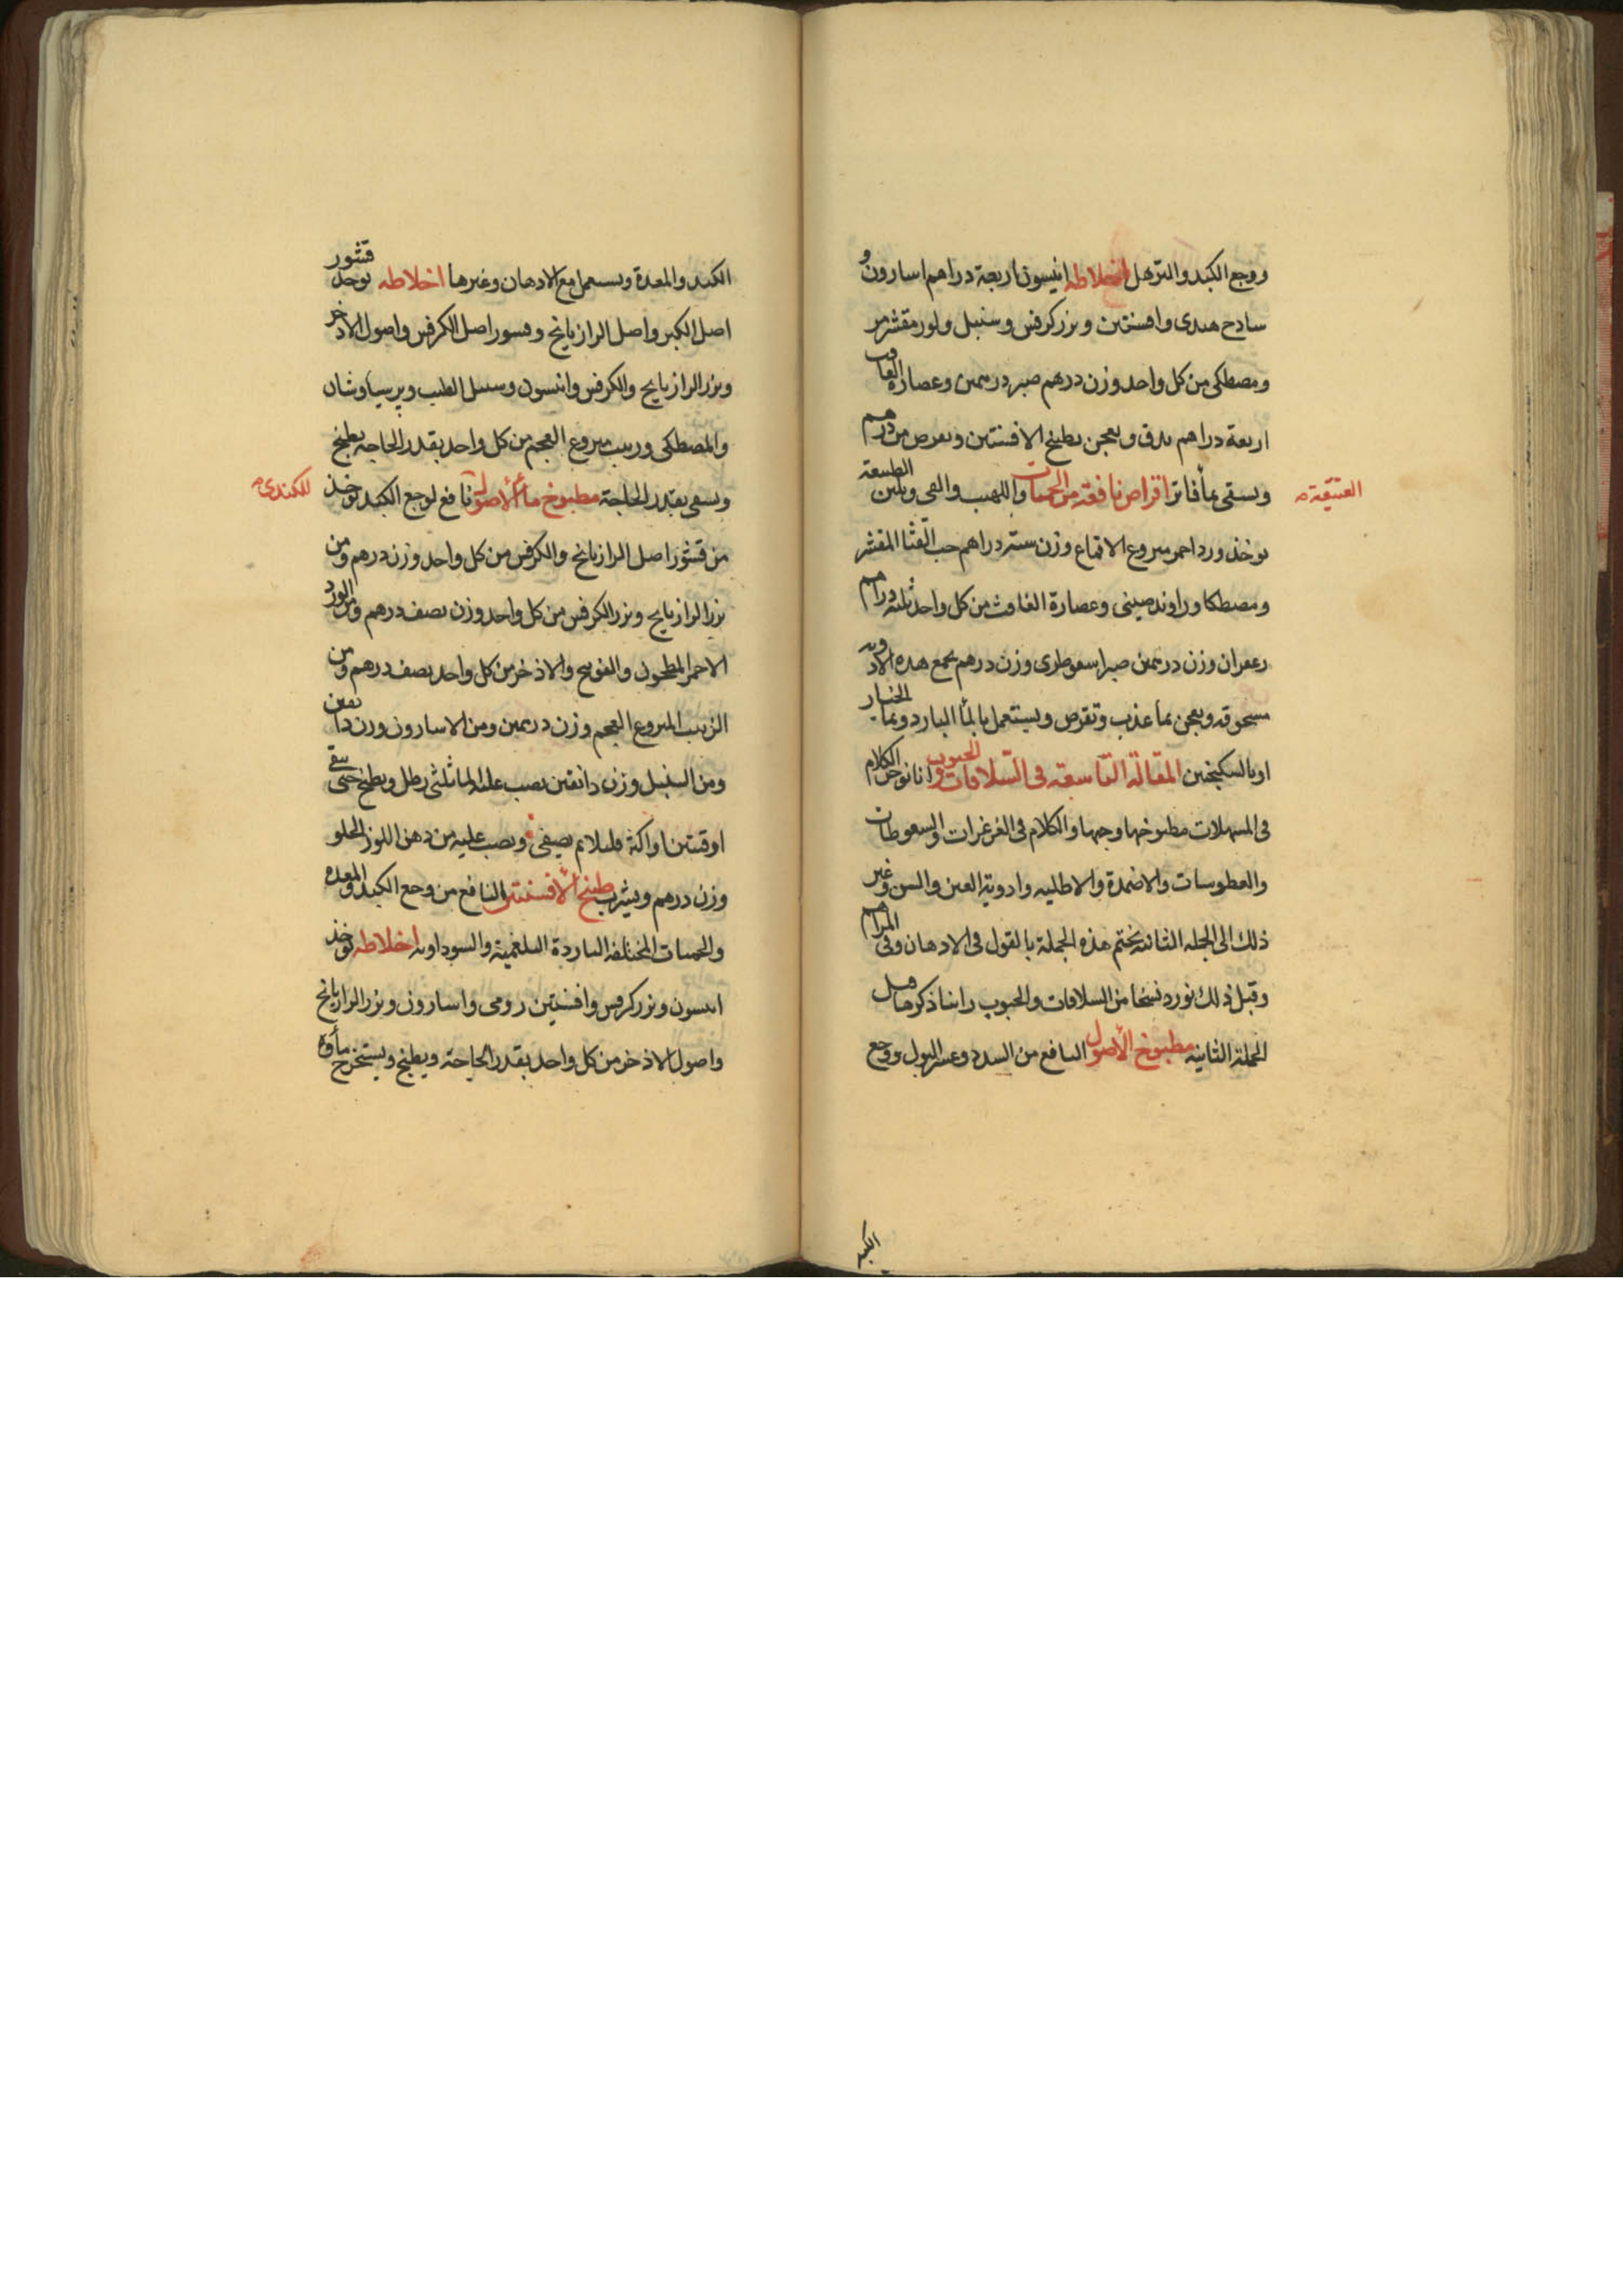 ووجع الكبد والترهل اخلاطه انيسون اربعة دراهم اسارون و
سادج هندى وافسنتين وبزر كرفس وسنبل ولوز مقشر مر
ومصطكى من كل واحد وزن درهم صبر درهمين وعصارة الغافت
اربعة دراهم يدق ويعجن بطبيخ الافسنتين ويقرص من درهم
ويسقى بمأ فاتر اقراص نافعة من الحميات واللهيب والقى ويلين الطبيعة
العتيقة
يوخذ ورد احمر منزوع الاقماع وزن ستة دراهم حب القثا المقشر
ومصطكا وراوند صينى وعصارة الغافث من كل واحد ثلثه دراهم
زعفران وزن درهمين صبر اسقوطرى وزن درهم يجمع هذه الادويه
مسحوقه ويعجن بمأ عذب وتقرص ويستعمل بالمأ البارد وبمأ الخيار
او بالسكنجبين المقالة التاسعة فى السلاقات والحبوب وانا نوخر الكلام
فى المسهلات مطبوخها وحبها والكلام فى الغرغرات والسعوطات
والعطوسات والاضمدة والاطليه وادوية العين والسن وغير
ذلك الى الجمله الثانيه نختم هذه الجملة بالقول فى الادهان وفى المراهم
وقبل ذلك نورد نسخا من السلاقات والحبوب راينا ذكرها قبل
الجملة الثانيه مطبوخ الأصول النافع من السدد وعسر البول ووجع
الكبد
الكبد والمعدة ويستعمل مع الادهان وغيرها اخلاطه يوخذ قشور
اصل الكبر واصل الرازيانج وقشور اصل الكرفس واصول الاذخر
وبزر الرازيانج والكرفس وانيسون وسنبل الطيب وبرسياوشان
والمصطكى وزبيب منزوع العجم من كل واحد بقدر الحاجه يطبخ
ويسقى بقدر الحاجة مطبوخ مأ الأصول نافع لوجع الكبد يوخذ
للكندى
من قشور اصل الرازيانج والكرفس من كل واحد وزن درهم ومن
بزر الرازيانج وبزر الكرفس من كل واحد وزن نصف درهم ومن الورد
الاحمر المطحون والفوتنج والاذخر من كل واحد نصف درهم ومن
الزبيب المنزوع العجم وزن درهمين ومن الاسارون وزن دانقين
ومن السنبل وزن دانقين يصب عليه الما ثلثى رطل ويطبخ حتى يبقى
اوقيتين او اكثر قليلا ثم يصفى ويصب عليه من دهن اللوز الحلو
وزن درهم ويشرب طبيخ الأفسنتين النافع من وجع الكبد والمعده
والحميات المختلفه الباردة البلغمية والسوداويه اخلاطه يوخذ
انيسون وبزر كرفس وافسنتين رومى واسارون وبزر الرازيانج
واصول الاذخر من كل واحد بقدر الحاجة ويطبخ ويستخرج مأوه